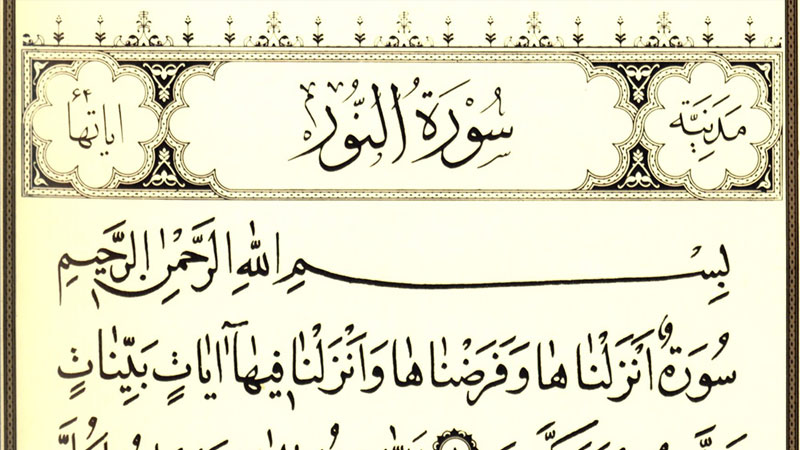 مَدَنِيَّة سُورَةُ النُّورِ اياتها ٦٤
بِسْمِ اللهِ الرَّحْمٰنِ الرَّحِيمِ
سُورَةٌ اَنْزَلْنَاهَا وَفَرَضْنَاهَا وَاَنْزَلْنَا فِيهَآ اٰيَاتٍ بَيِّنَاتٍ